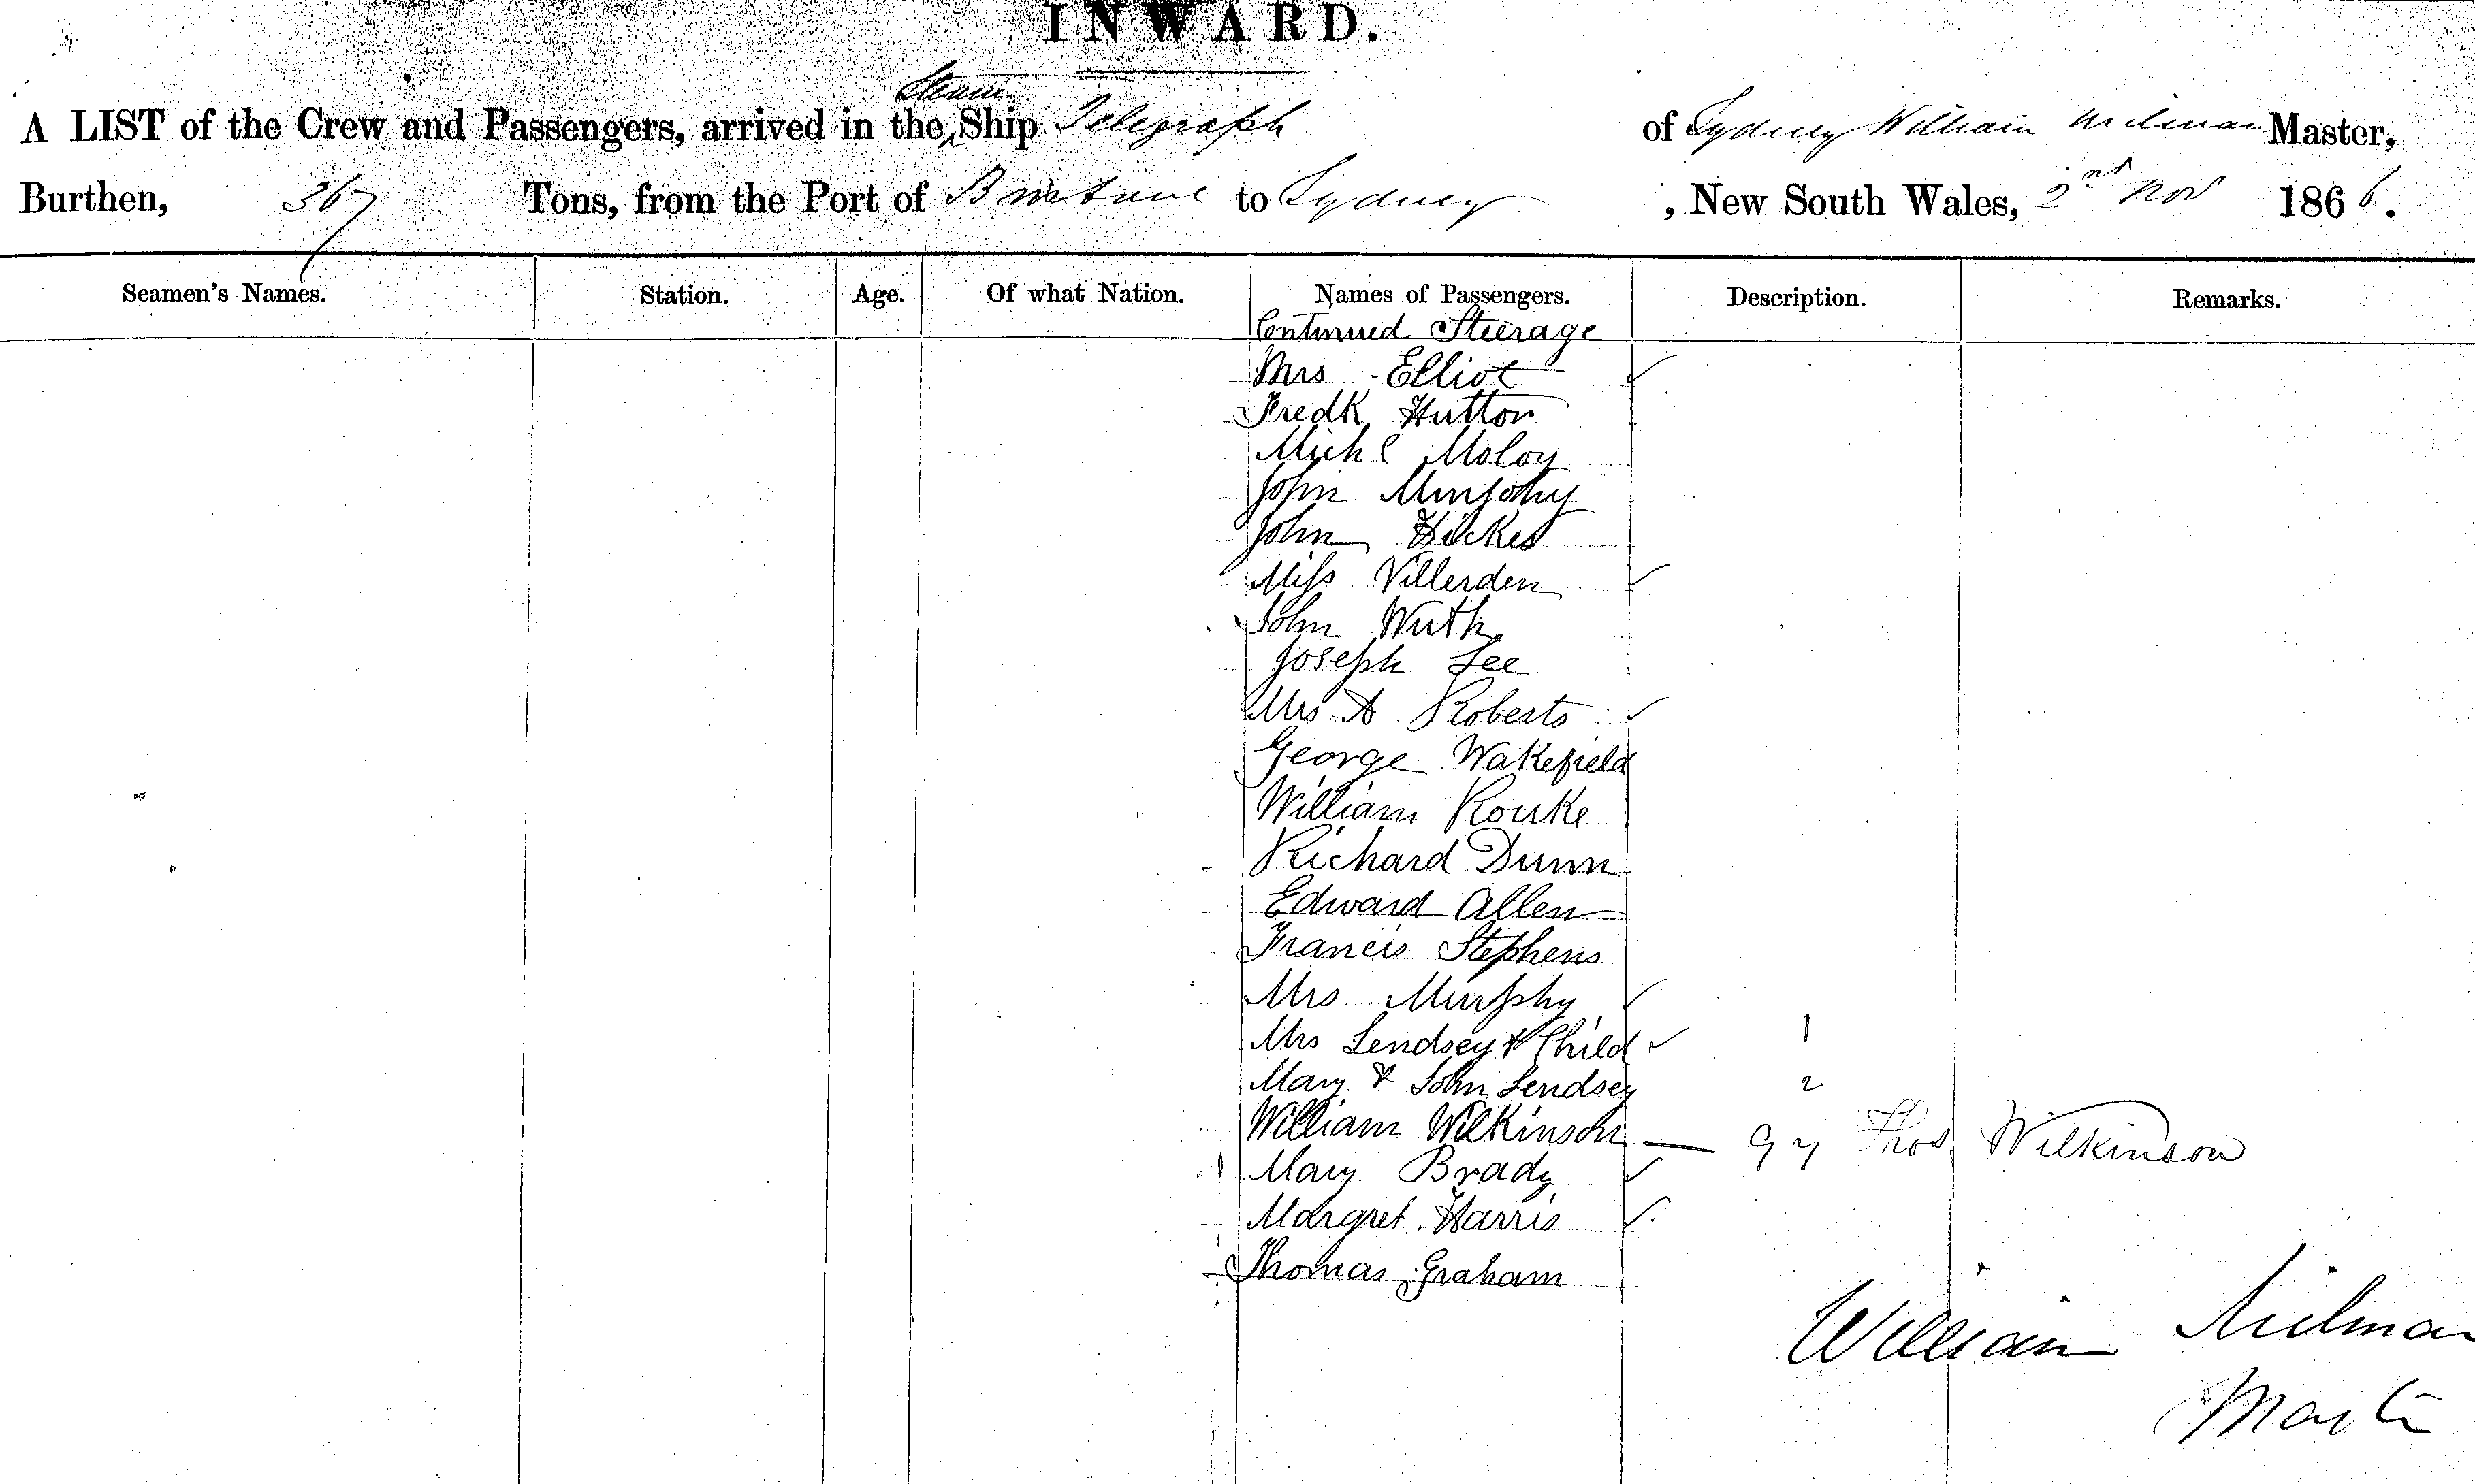 INWARD.
A LIST of the Crew and Passengers, arrived in the Steam Ship Telegraph of Sydney William Milman Master,
Burthen, 367 Tons, from the Port of Brisbane to Sydney , New South Wales, 2nd Nov 1866.
Seamen's Names. Station. Age. Of what Nation. Names of Passengers. Description. Remarks.
Continued Steerage
Mrs Elliot
Fredk Hutton
Michl Moloy
John Murphy
John Hickes
Miss Villerden
John Wuth
Joseph Lee
Mrs A Roberts
George Wakefield
William Rourke
Richard Dunn
Edward Allen
Francis Stephens
Mrs Murphy
Mrs Lendsey & Child 1
Mary & John Lendsey 2
William Wilkinson — Thos. Wilkinson
Mary Brady
Margret Harris
Thomas Graham
William Milman